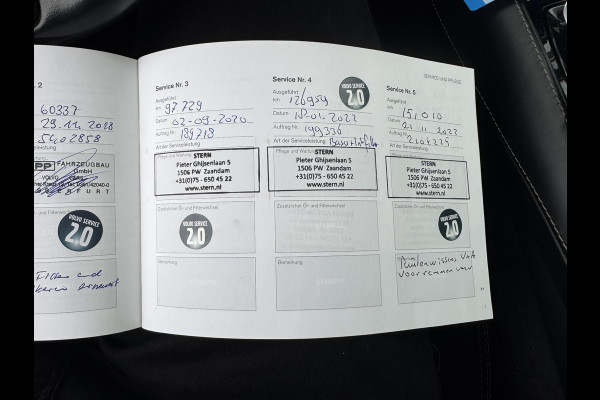 SERVICE UND PFLEGE
. 2
60337
29.11.2018
5402858
eistung
PP FAHRZEUGBAU
GmbH
VOLVO
ERFURT
Öl- und Filterwechsel
VOLVO SERVICE
2.0
Service Nr. 3
Ausgeführt
km 97.729
Datum 02-09-2020
Auftrag Nr. 189718
Art der Serviceleistung
Pflege und Wartung
STERN
Pieter Ghijsenlaan 5
1506 PW Zaandam
+31(0)75 - 650 45 22
www.stern.nl
Zusätzlicher Öl- und Filterwechsel
VOLVO SERVICE
2.0
Bemerkung
Service Nr. 4
Ausgeführt
km 126959
VOLVO SERVICE
2.0
Datum
Auftrag Nr. 199336
Art der Serviceleistung
Pflege und Wartung
STERN
Pieter Ghijsenlaan 5
1506 PW Zaandam
+31(0)75 - 650 45 22
www.stern.nl
Zusätzlicher Öl- und Filterwechsel
Bemerkung
Service Nr. 5
Ausgeführt
km
Datum
Auftrag Nr.
Art der Serviceleistung
STERN
Pieter Ghijsenlaan 5
1506 PW Zaandam
+31(0)75 - 650 45 22
www.stern.nl
Zusätzlicher Öl- und Filterwechsel
VOLVO SERVICE
2.0
Ruitenwissers